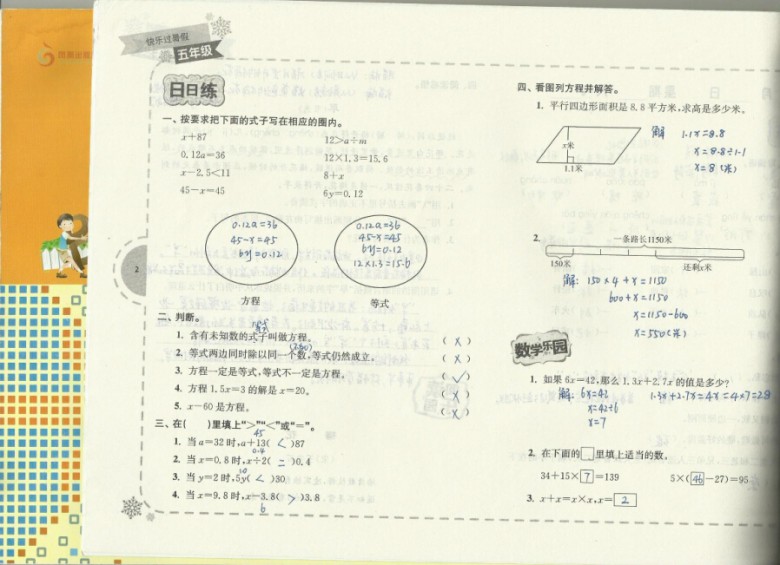 快乐过暑假
五年级
日日练
一、按要求把下面的式子写在相应的圈内。
x+87
12>a÷m
0.12a=36
12×1.3=15.6
x-2.5<11
8+x
45-x=45
6y=0.12
0.12a=36
45-x=45
6y=0.12
0.12a=36
45-x=45
6y=0.12
12×1.3=15.6
方程
等式
2
二、判断。
1. 含有未知数的式子叫做方程。 (×)
等式
2. 等式两边同时除以同一个数,等式仍然成立。 (×)
3. 方程一定是等式,等式不一定是方程。 (√)
4. 方程1.5x=3的解是x=20。 (×)
5. x-60是方程。 (×)
三、在( )里填上“>”“<”或“=”。
45
1. 当a=32时,a+13(<)87
0.4
2. 当x=0.8时,x÷2(=)0.4
10
3. 当y=2时,5y(<)30
4. 当x=9.8时,x-3.8(>)3.8
6
四、看图列方程并解答。
1. 平行四边形面积是8.8平方米,求高是多少米。
x米
1.1米
解 1.1x=8.8
x=8.8÷1.1
x=8(米)
2.
一条路长1150米
150米
还剩x米
解: 150×4+x=1150
600+x=1150
x=1150-600
x=550(米)
数学乐园
1. 如果6x=42,那么1.3x+2.7x的值是多少?
解: 6x=42
x=42÷6
x=7
1.3x+2.7x=4x=4×7=28
2. 在下面的□里填上适当的数。
34+15×7=139
5×(46-27)=95
3. x+x=x×x,x=2